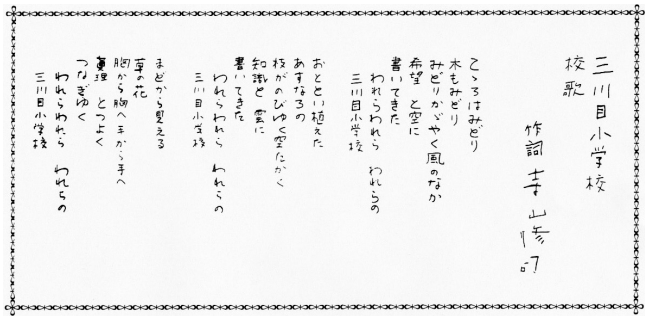 三川目小学校
校歌
作詞 寺山修司
こゝろはみどり
木もみどり
みどりかゞやく風のなか
希望 と空に
書いてきた
われらわれら われらの
三川目小学校
おととい植えた
あすなろの
枝がのびゆく空たかく
知識と 雲に
書いてきた
われらわれら われらの
三川目小学校
まどから見える
草の花
胸から胸へ手から手へ
真理 とつよく
つなぎゆく
われらわれら われらの
三川目小学校